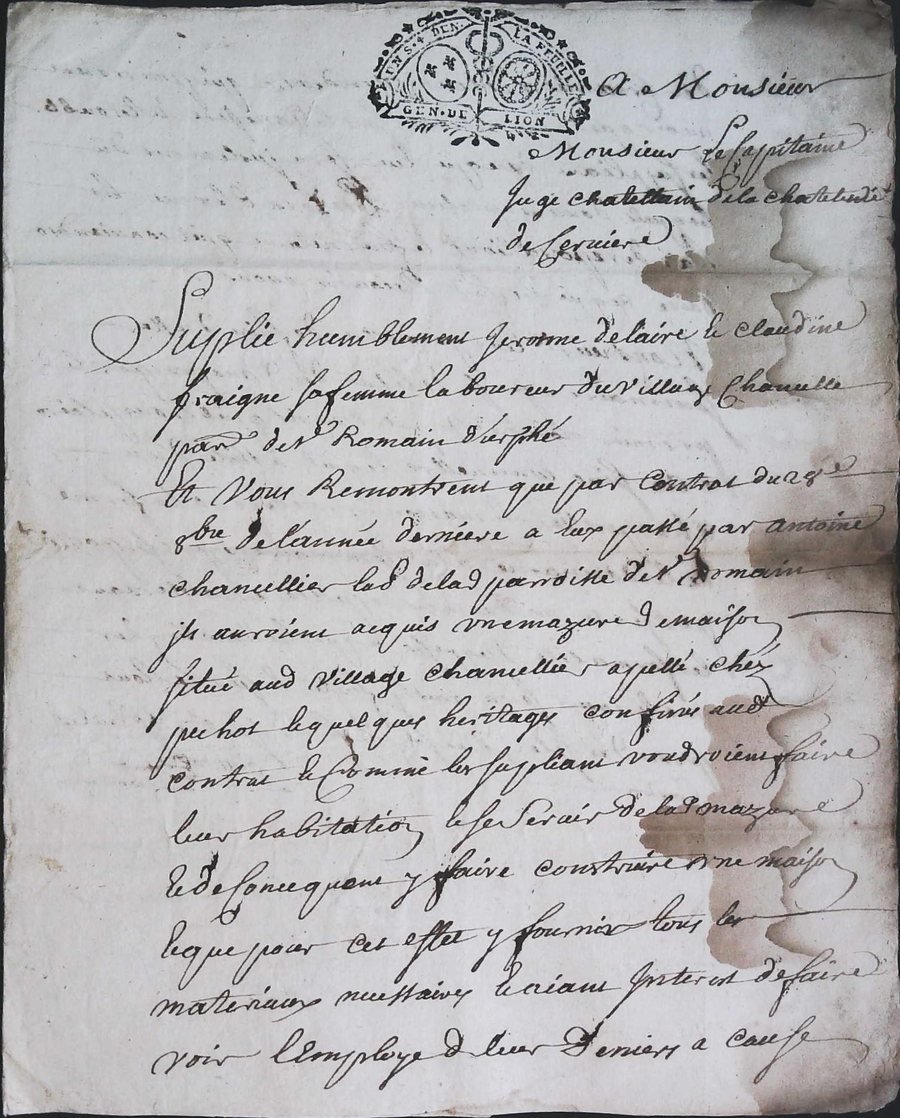 UN S. 4 DEN. LA FEUILLE
GEN. DE LION
A Monsieur
Monsieur Le Capitaine
Juge chatellain de la chatelenie
de Cerviere
Suplie humblement Jerosme delaire & claudine
fraigne sa femme laboureur du village Chancelle
parr de St Romain d'urphé
Et Vous Remontrent que par Contrat du 28e
8bre de l'année derniere a Eux passé par antoine
chancellier lab de lad parroisse de St Romain
ils auroient acquis une mazure de maison
situé aud village chancellier apellé chéz
pechot & quelques heritages confinés aud
contrat & Comme les supliant voudroient faire
leur habitation & se Servir de lad mazure
& de Concequent y faire construire une maison
& que pour cet effet y fournir tous les
materiaux necessaires & aiant Interest de faire
voir l'Employe de leur Deniers a cause